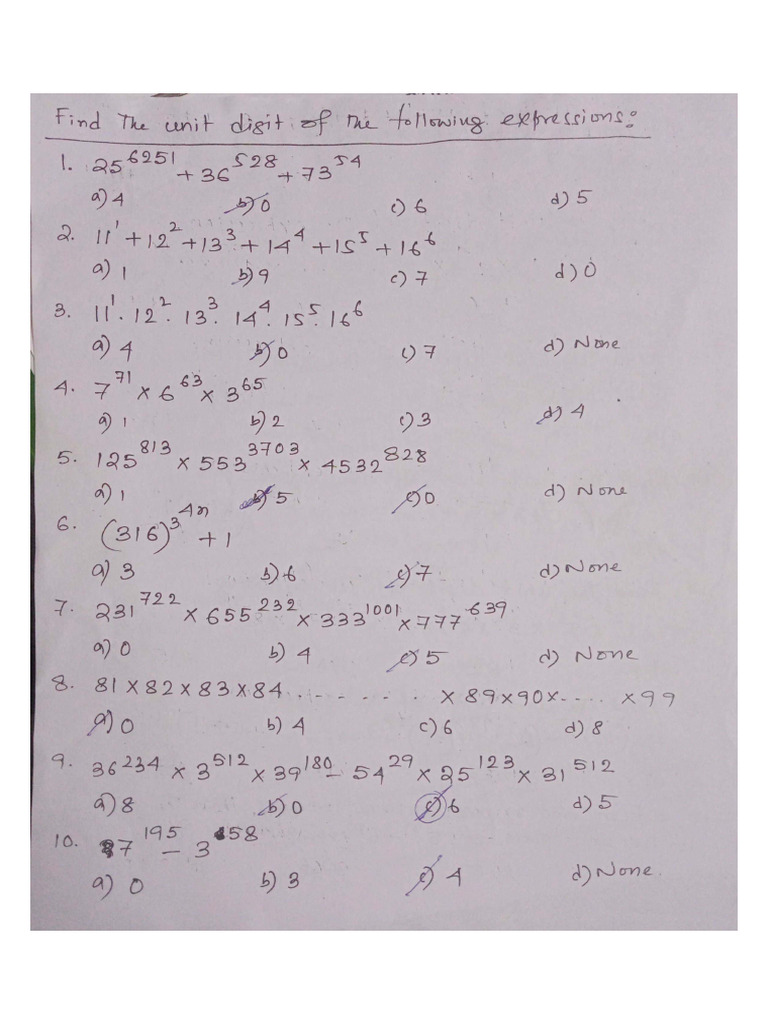 Find The unit digit of the following expressions:
1. 25^6251 + 36^528 + 73^54
a) 4 b) 0 c) 6 d) 5
2. 11^1 + 12^2 + 13^3 + 14^4 + 15^5 + 16^6
a) 1 b) 9 c) 7 d) 0
3. 11^1 . 12^2 . 13^3 . 14^4 . 15^5 . 16^6
a) 4 b) 0 c) 7 d) None
4. 7^71 × 6^63 × 3^65
a) 1 b) 2 c) 3 d) 4
5. 125^813 × 553^3703 × 4532^828
a) 1 b) 5 c) 0 d) None
6. (316)^3^4n + 1
a) 3 b) 6 c) 7 d) None
7. 231^722 × 655^232 × 333^1001 × 777^639
a) 0 b) 4 c) 5 d) None
8. 81 × 82 × 83 × 84 . - - - - - . . × 89 × 90 × - . . . × 99
a) 0 b) 4 c) 6 d) 8
9. 36^234 × 3^512 × 39^180 - 54^29 × 25^123 × 31^512
a) 8 b) 0 c) 6 d) 5
10. 7^195 - 3^58
a) 0 b) 3 c) 4 d) None